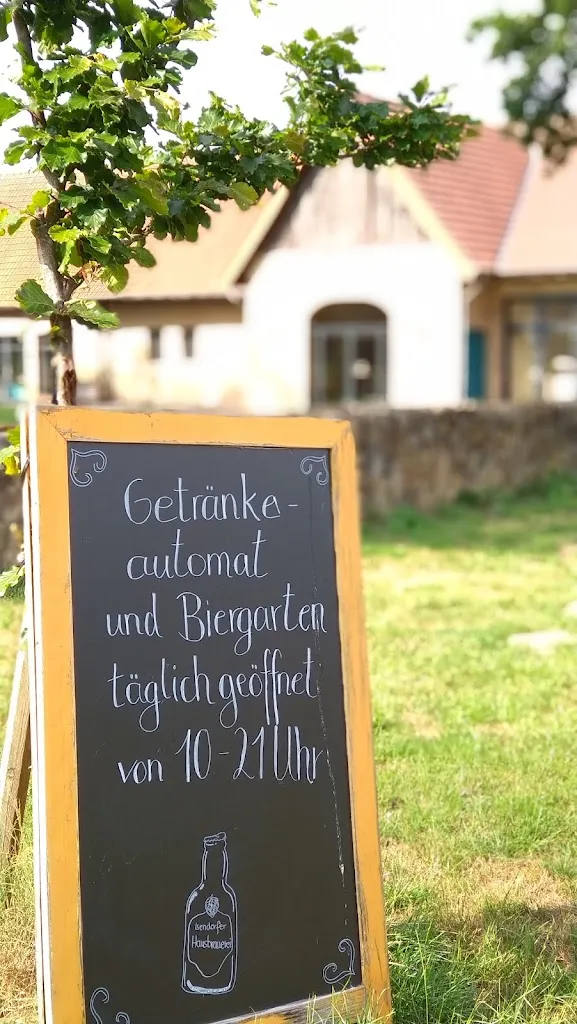 Getränke-
automat
und Biergarten
täglich geöffnet
von 10-21 Uhr
Isendorfer
Hausbrauerei